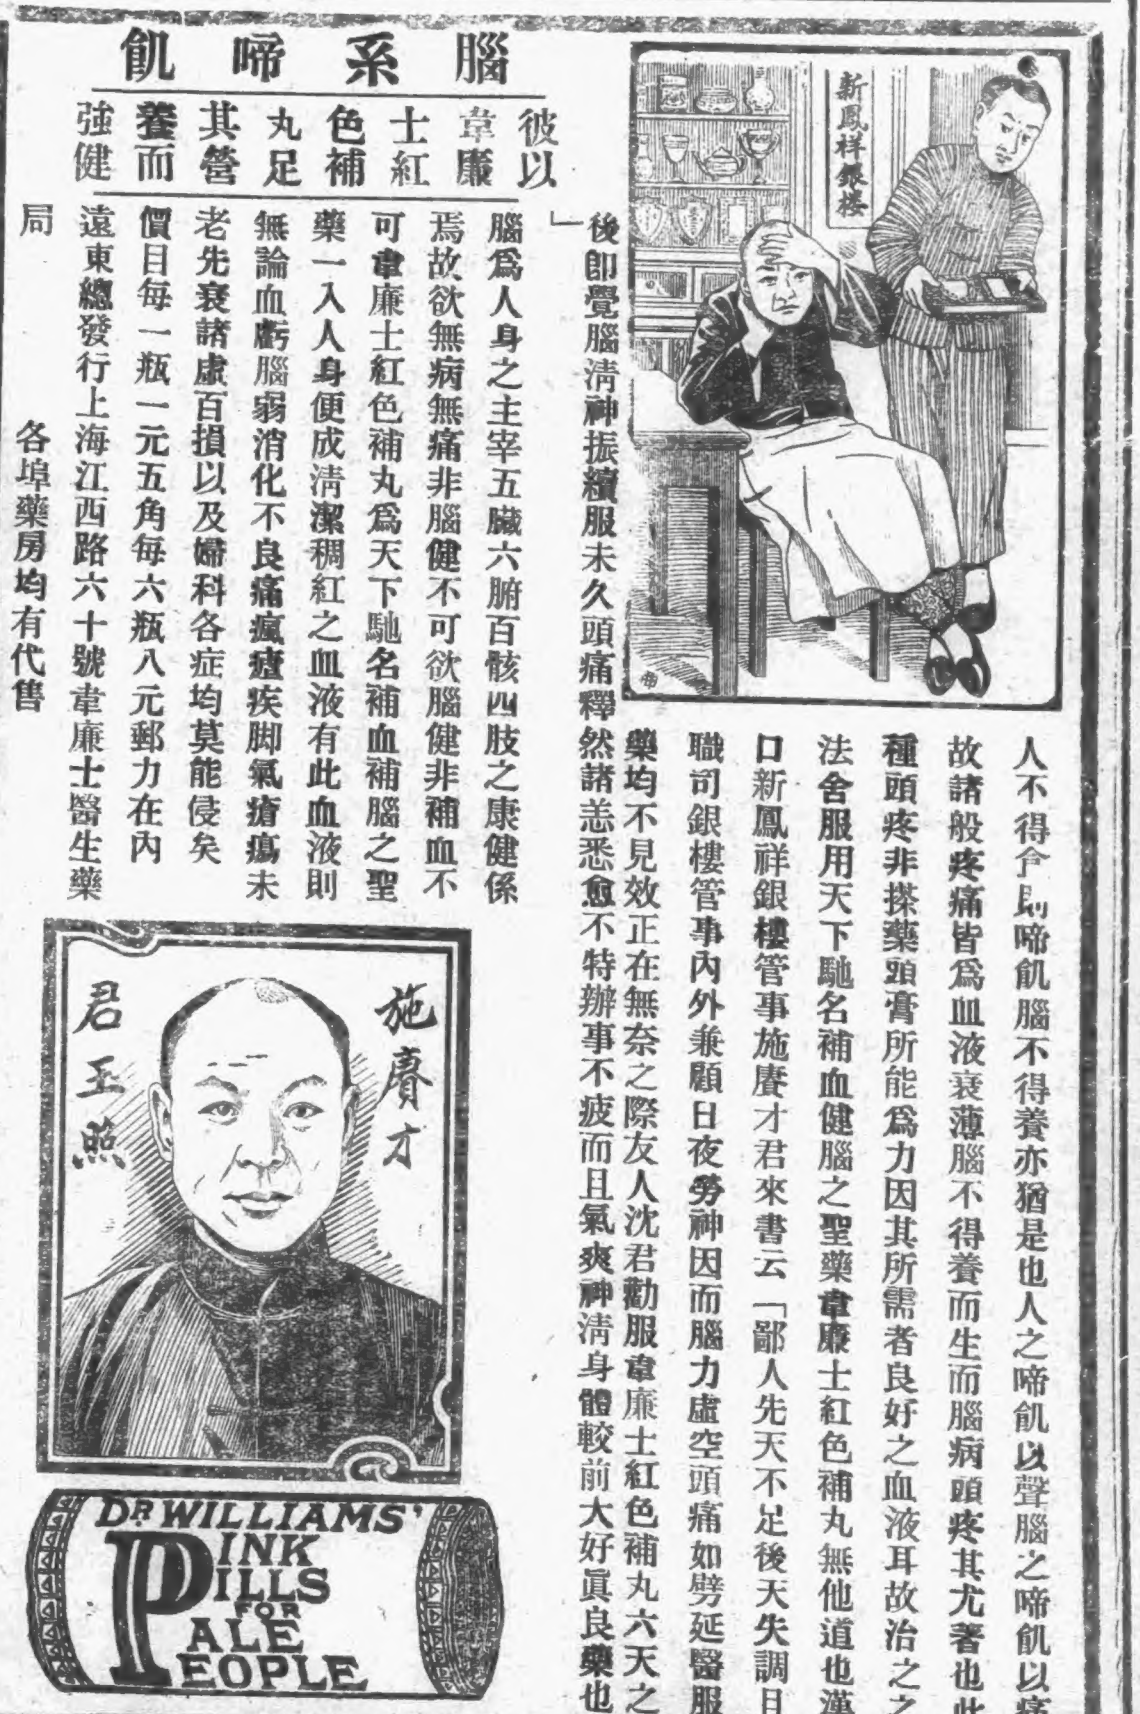 腦系啼飢
彼以
韋廉
士紅
色補
丸足
其營
養而
強健
新鳳祥銀樓
人不得食則啼飢腦不得養亦猶是也人之啼飢以聲腦之啼飢以痛
故諸般疼痛皆爲血液衰薄腦不得養而生而腦病頭疼其尤著也此
種頭疼非搽藥頭膏所能爲力因其所需者良好之血液耳故治之之
法舍服用天下馳名補血健腦之聖藥韋廉士紅色補丸無他道也漢
口新鳳祥銀樓管事施賡才君來書云「鄙人先天不足後天失調且
職司銀樓管事內外兼顧日夜勞神因而腦力虛空頭痛如劈延醫服
藥均不見效正在無奈之際友人沈君勸服韋廉士紅色補丸六天之
後卽覺腦淸神振續服未久頭痛釋然諸恙悉愈不特辦事不疲而且氣爽神淸身體較前大好眞良藥也
」
腦爲人身之主宰五臟六腑百骸四肢之康健係
焉故欲無病無痛非腦健不可欲腦健非補血不
可韋廉士紅色補丸爲天下馳名補血補腦之聖
藥一入人身便成淸潔稠紅之血液有此血液則
無論血虧腦弱消化不良痛瘋瘧疾脚氣瘡瘍未
老先衰諸虛百損以及婦科各症均莫能侵矣
價目每一瓶一元五角每六瓶八元郵力在內
遠東總發行上海江西路六十號韋廉士醫生藥
局
各埠藥房均有代售
施賡才
君玉照
DR WILLIAMS'
PINK
PILLS
FOR
PALE
PEOPLE